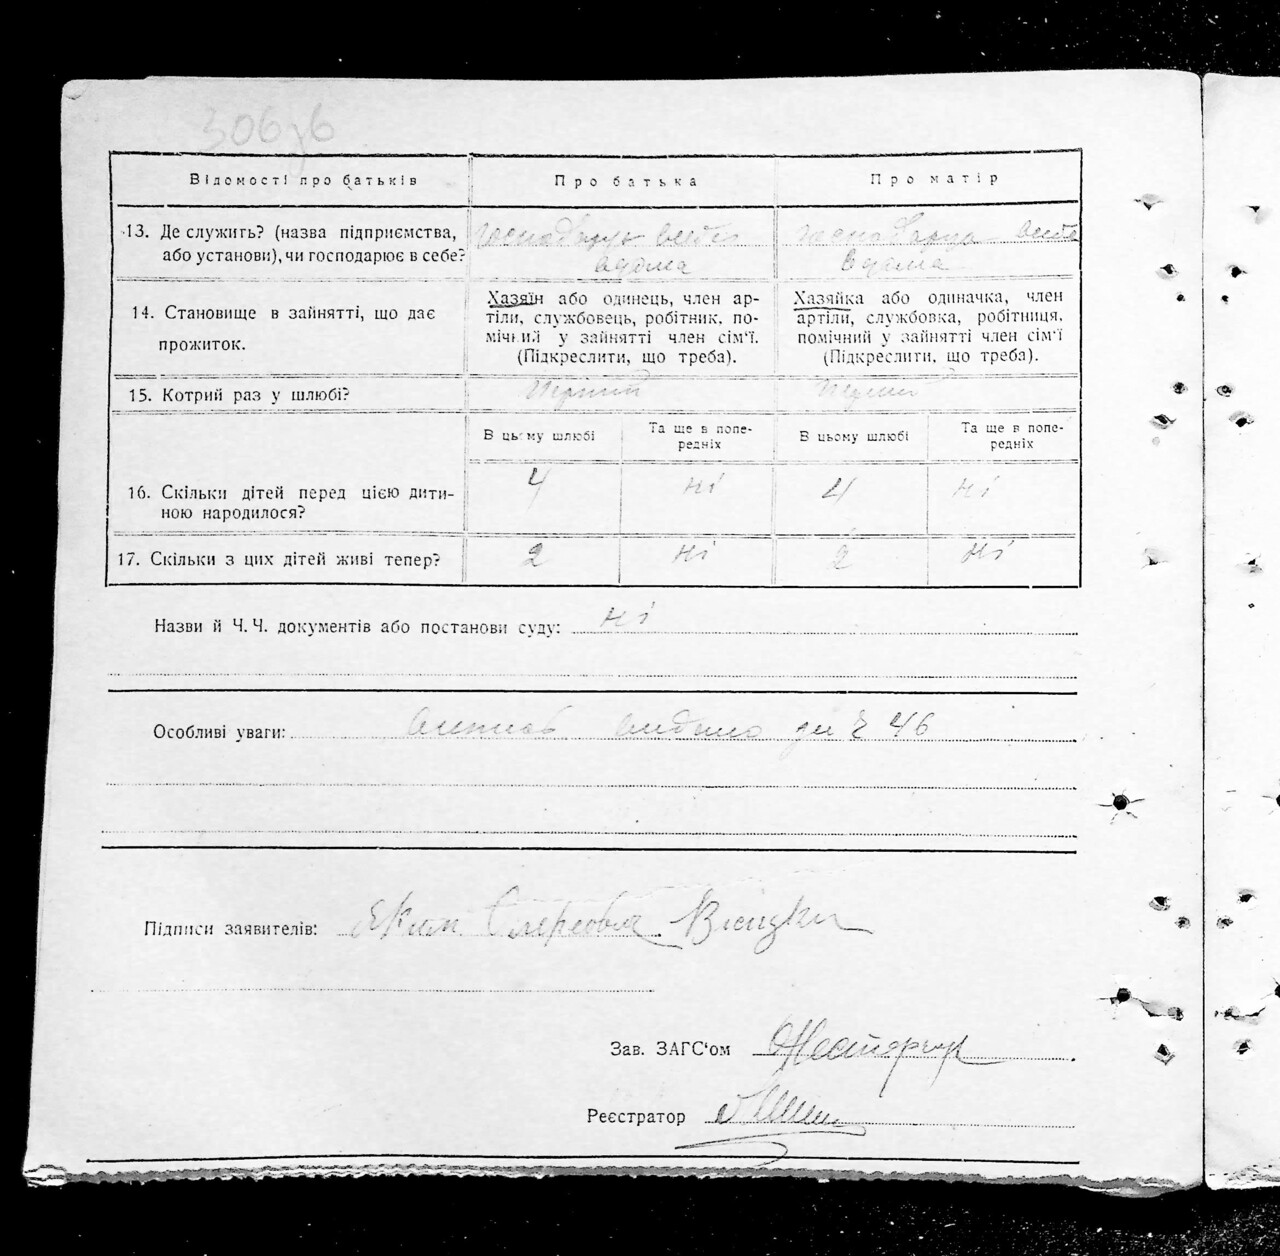 306зв
Відомості про батьків
Про батька
Про матір
13. Де служить? (назва підприємства,
або установи), чи господарює в себе?
14. Становище в зайнятті, що дає
прожиток.
Хазяїн або одинець, член ар-
тіли, службовець, робітник, по-
мічний у зайнятті член сім'ї.
(Підкреслити, що треба).
Хазяйка або одиначка, член
артіли, службовка, робітниця,
помічний у зайнятті член сім'ї
(Підкреслити, що треба).
15. Котрий раз у шлюбі?
Перший
Перший
В цьому шлюбі
Та ще в попе-
редніх
В цьому шлюбі
Та ще в попе-
редніх
16. Скільки дітей перед цією дити-
ною народилося?
4
ні
4
ні
17. Скільки з цих дітей живі тепер?
2
ні
2
ні
Назви й Ч. Ч. документів або постанови суду: ні
Особливі уваги: видано 46
Підписи заявителів:
Зав. ЗАГС'ом
Реєстратор